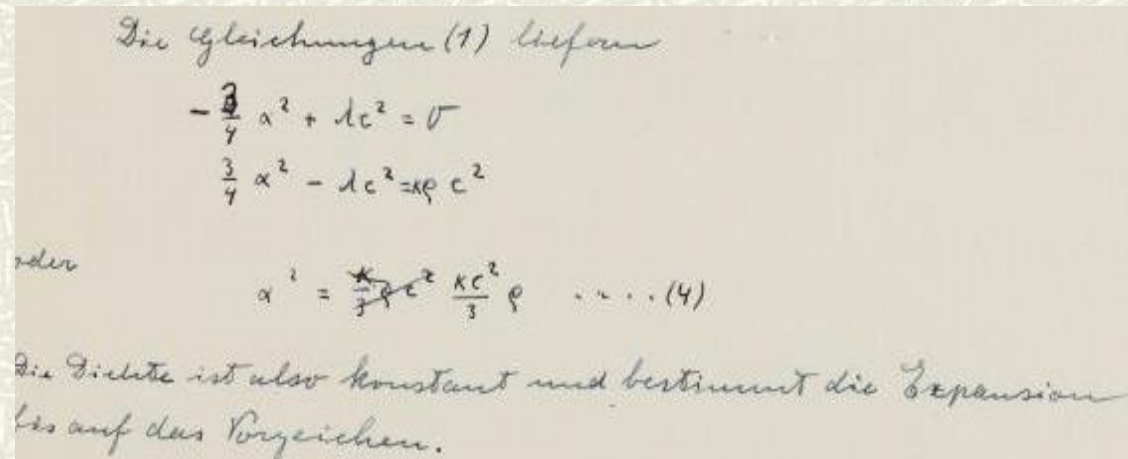 Die Gleichungen (1) liefern
- 3/4 α² + λc² = 0
3/4 α² - λc² = κρc²
oder
α² = κc²/3 ρ .... (4)
Die Dichte ist also konstant und bestimmt die Expansion
bis auf das Vorzeichen.